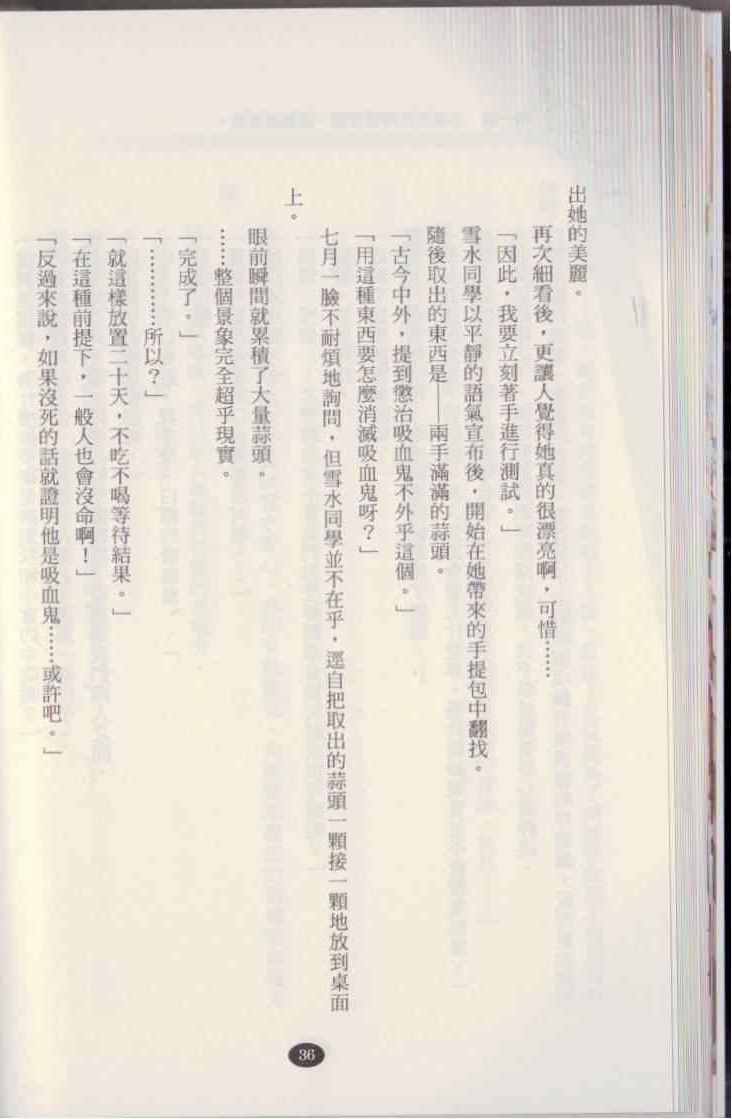 出她的美麗。
再次細看後，更讓人覺得她真的很漂亮啊，可惜……
「因此，我要立刻著手進行測試。」
雪水同學以平靜的語氣宣布後，開始在她帶來的手提包中翻找。
隨後取出的東西是——兩手滿滿的蒜頭。
「古今中外，提到懲治吸血鬼不外乎這個。」
「用這種東西要怎麼消滅吸血鬼呀？」
七月一臉不耐煩地詢問，但雪水同學並不在乎，逕自把取出的蒜頭一顆接一顆地放到桌面
上。
眼前瞬間就累積了大量蒜頭。
……整個景象完全超乎現實。
「完成了。」
「…………所以？」
「就這樣放置二十天，不吃不喝等待結果。」
「在這種前提下，一般人也會沒命啊！」
「反過來說，如果沒死的話就證明他是吸血鬼……或許吧。」
36